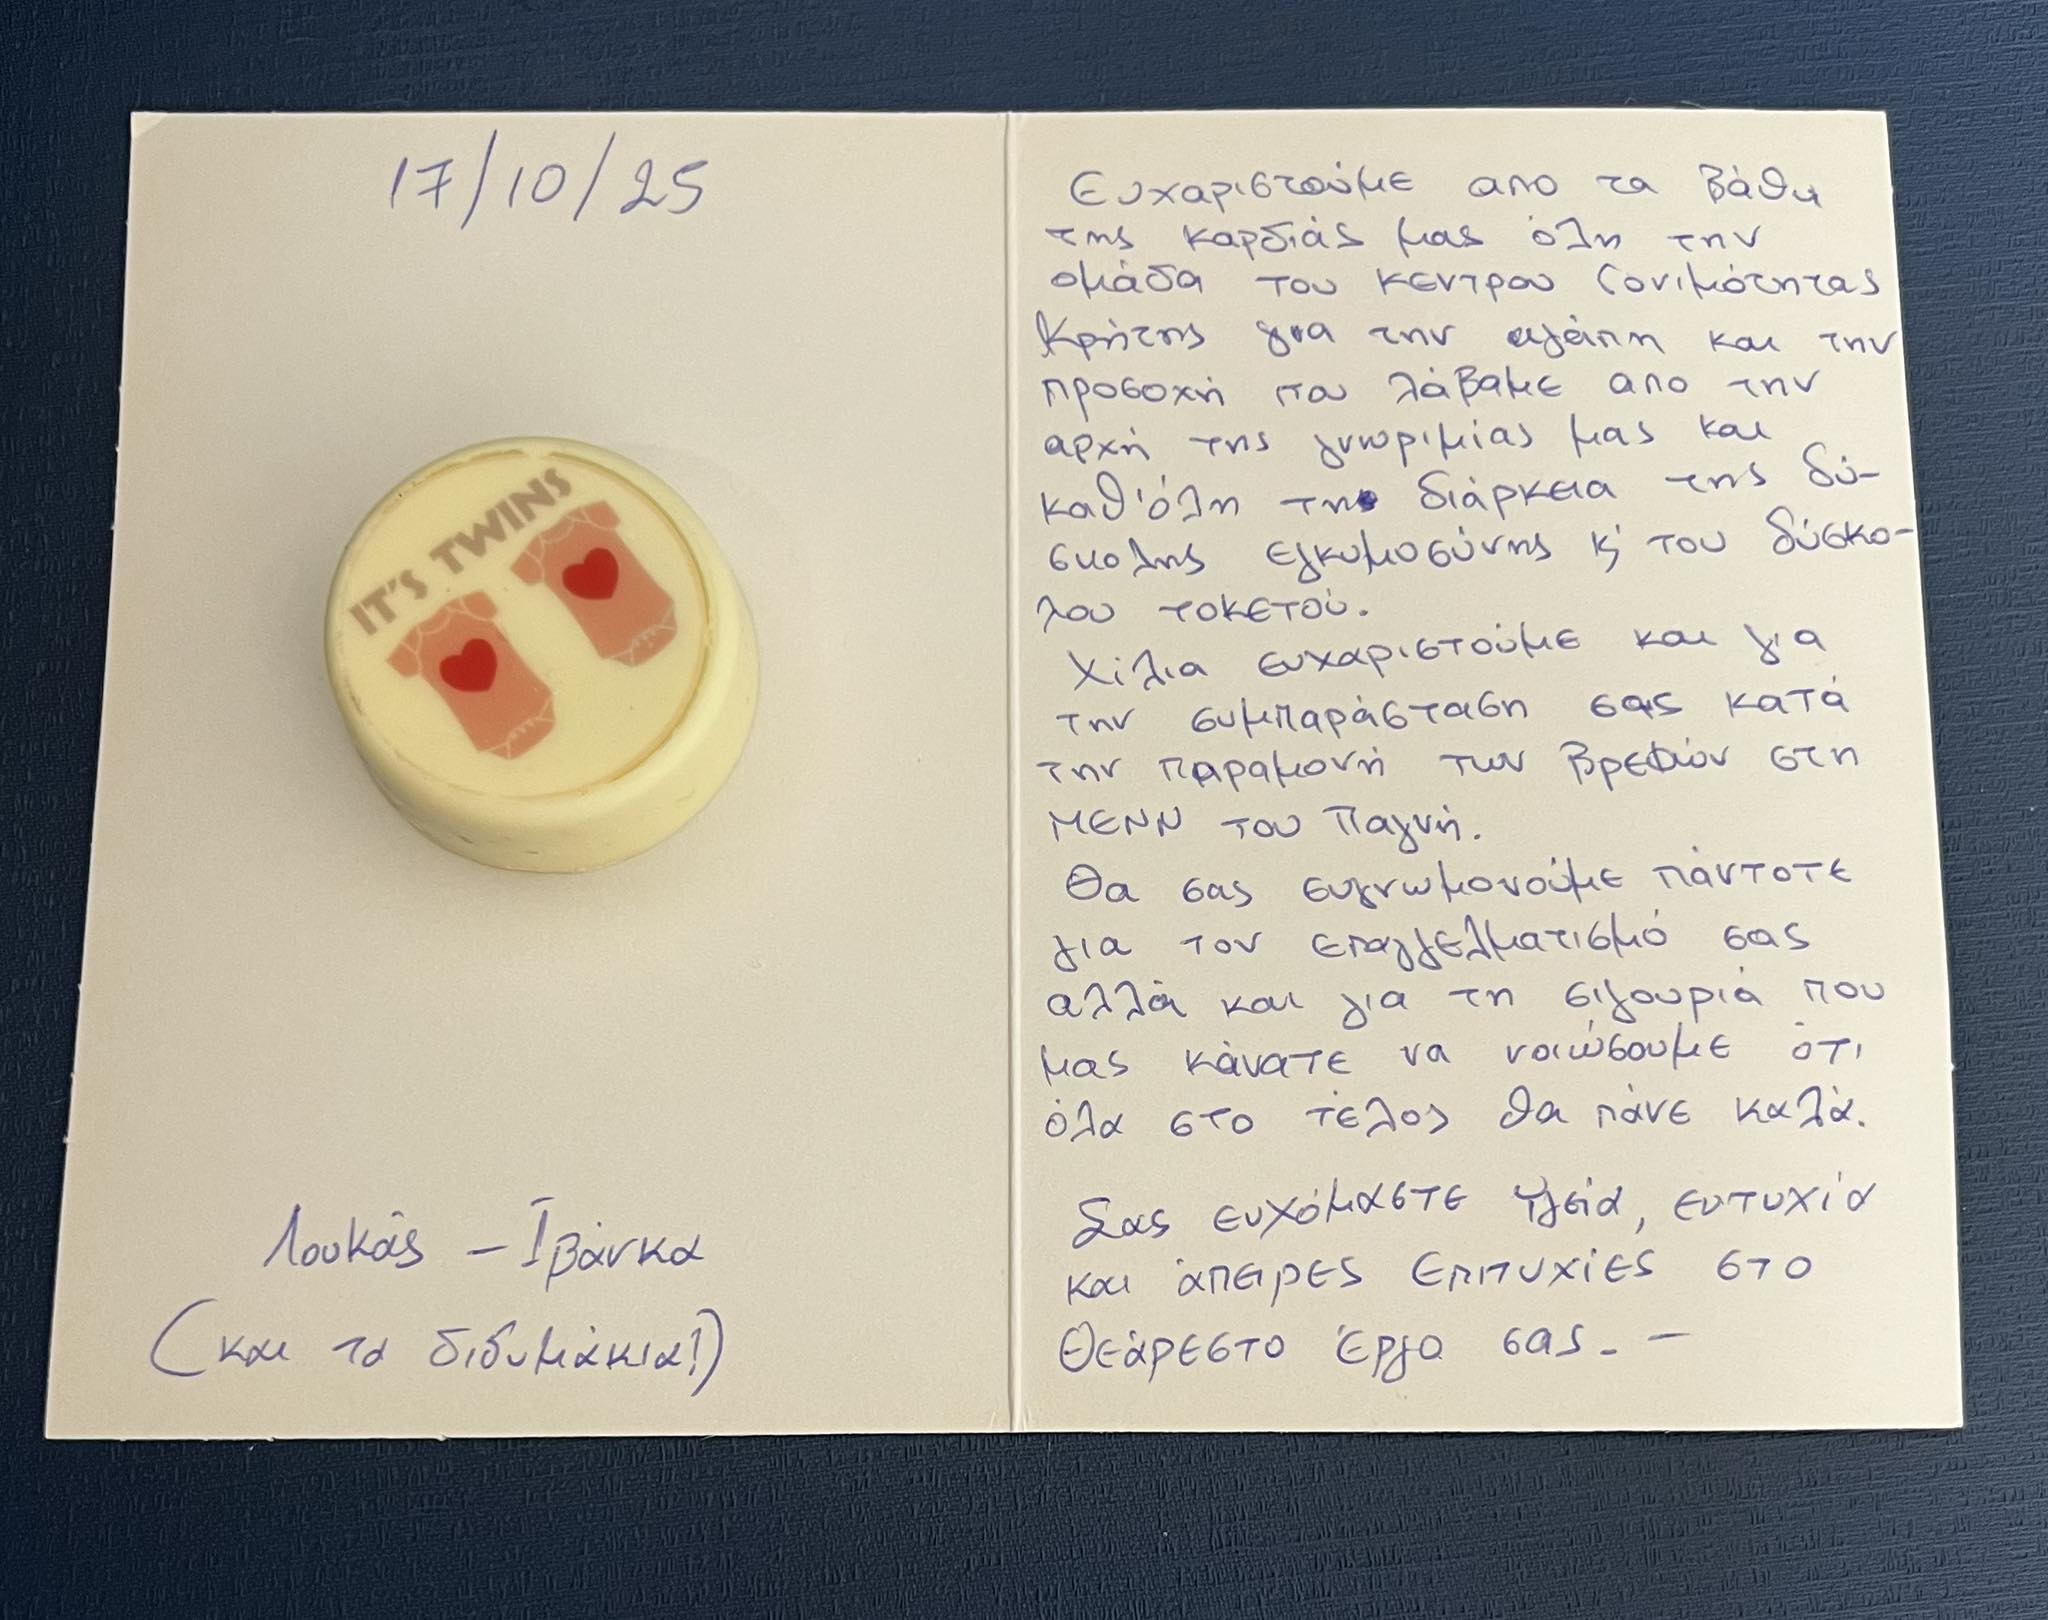 17/10/25
IT'S TWINS
Λουκάς - Ιβάνκα
(και τα διδυμάκια!)
Ευχαριστούμε απο τα βάθη
της καρδιάς μας όλη την
ομάδα του κεντρου Γονιμότητας
Κρήτης για την αγάπη και την
προσοχή που λάβαμε απο την
αρχή της γνωριμίας μας και
καθ'όλη τη διάρκεια της δύ-
σκολης εγκυμοσύνης κ' του δύσκο-
λου τοκετού.
Χίλια ευχαριστούμε και για
την συμπαράσταση σας κατά
την παραμονή των βρεφών στη
ΜΕΝΝ του Παγνή.
Θα σας ευγνωμονούμε πάντοτε
για τον επαγγελματισμό σας
αλλά και για τη σιγουριά που
μας κάνατε να νοιώσουμε ότι
όλα στο τέλος θα πάνε καλά.
Σας ευχόμαστε Υγεία, ευτυχία
και άπειρες επιτυχίες στο
Θεάρεστο έργο σας. -